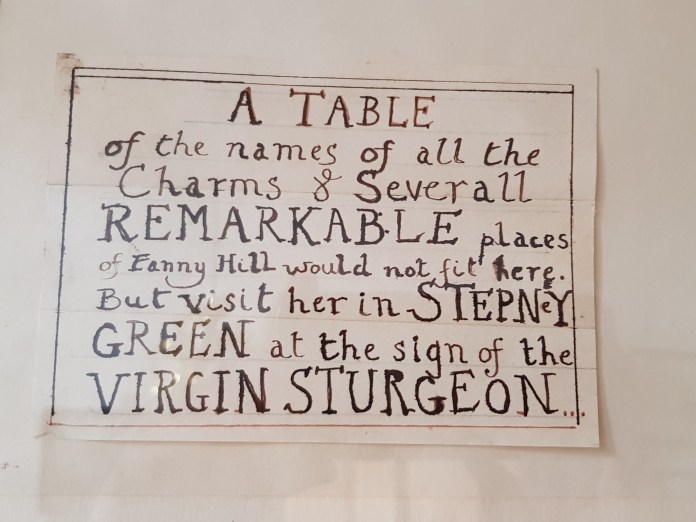 A TABLE
of the names of all the
Charms & Severall
REMARKABLE places
of Fanny Hill would not fit here.
But visit her in STEPNeY
GREEN at the sign of the
VIRGIN STURGEON....